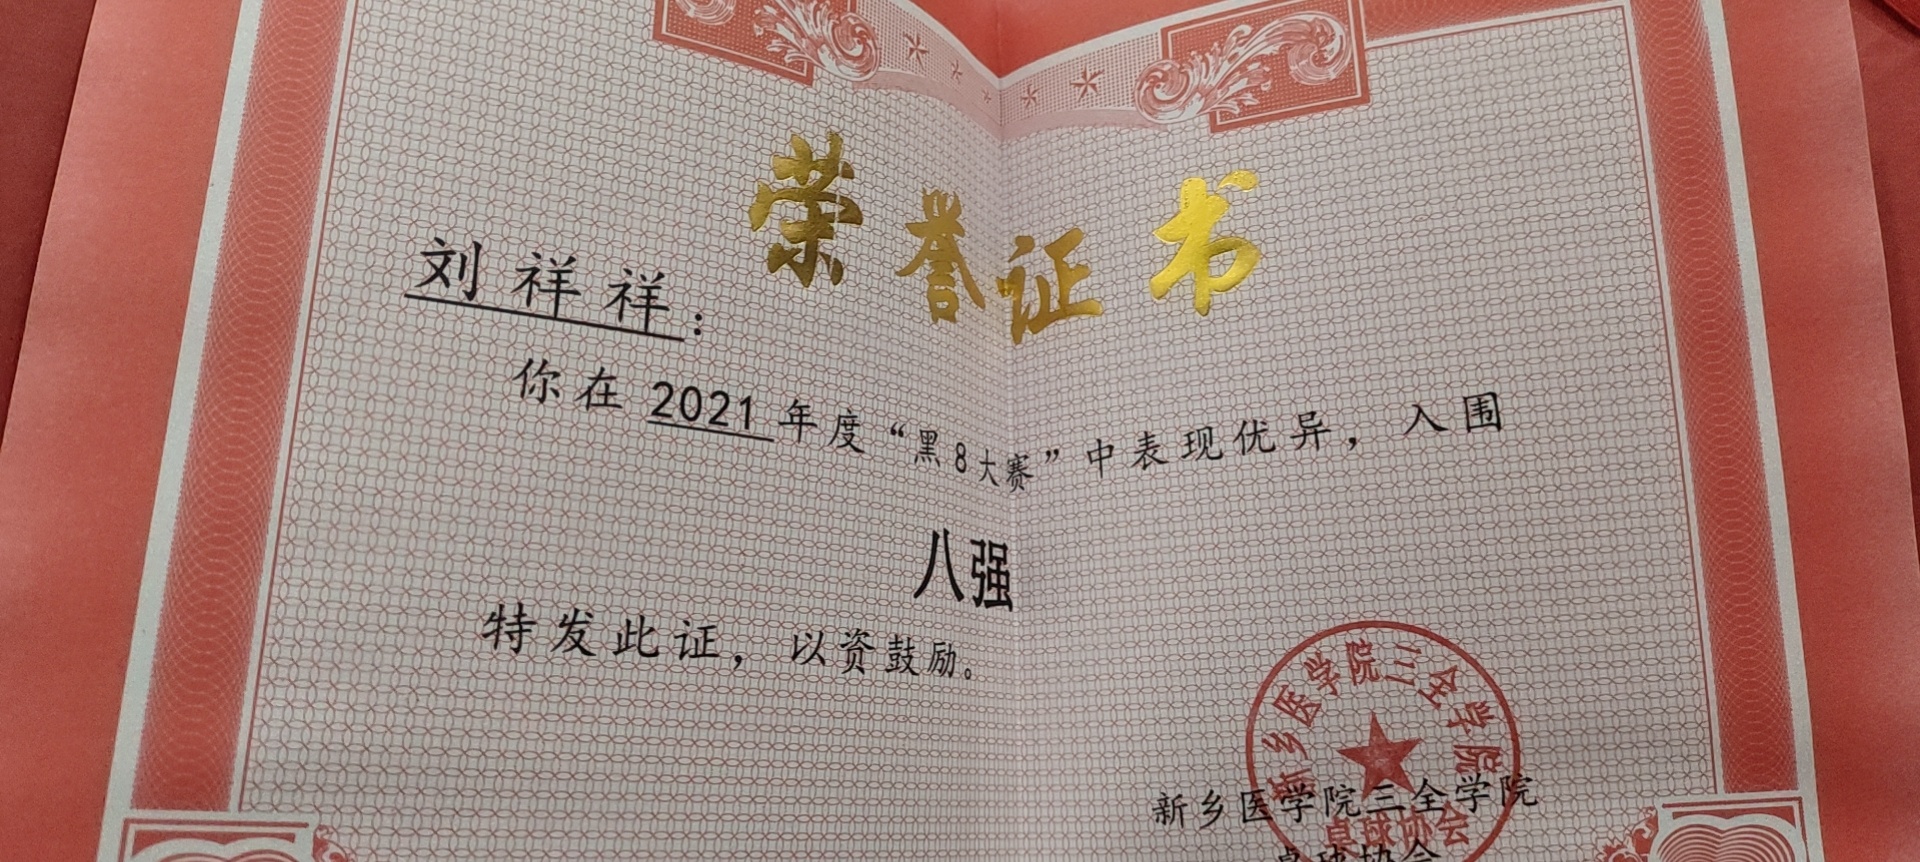 荣誉证书
刘祥祥：
你在2021年度“黑8大赛”中表现优异，入围
八强
特发此证，以资鼓励。
新乡医学院三全学院
桌球协会
新乡医学院三全学院
桌球协会